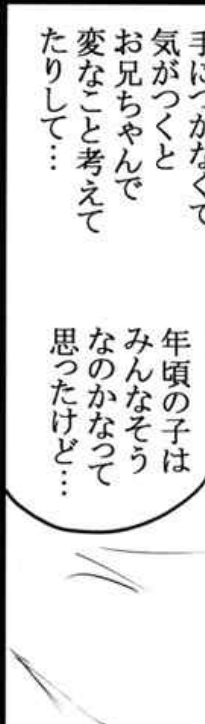 手につかなくて
気がつくと
お兄ちゃんで
変なこと考えて
たりして…
年頃の子は
みんなそう
なのかなって
思ったけど…